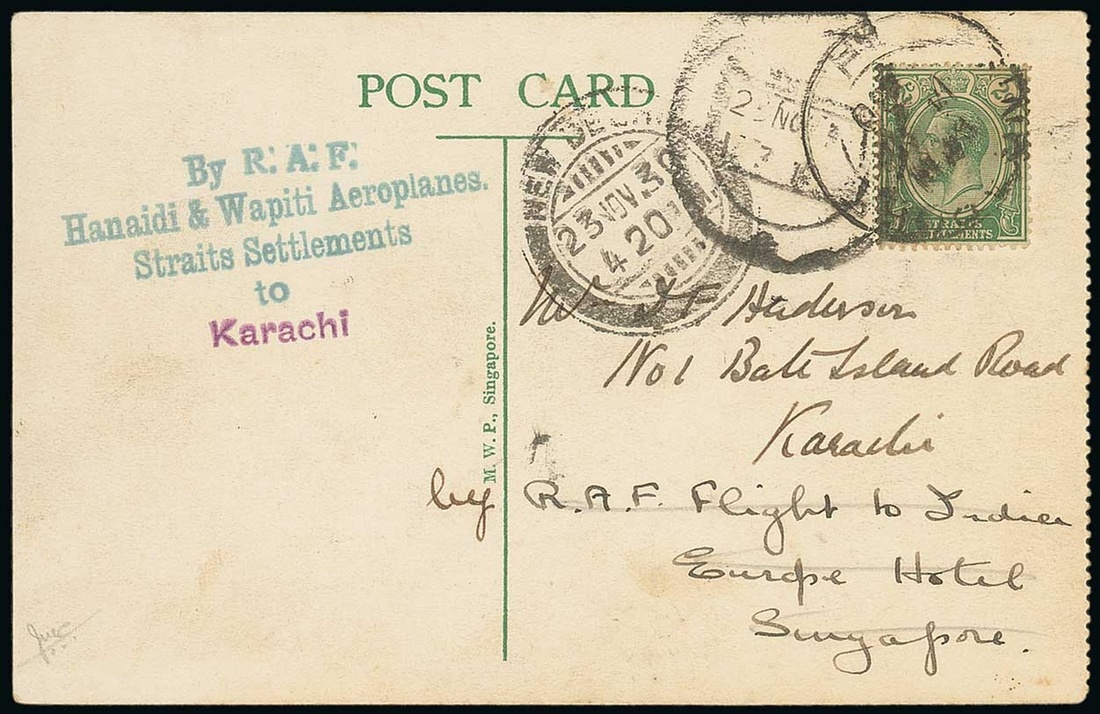 POST CARD
By R.A.F.
Hanaidi & Wapiti Aeroplanes.
Straits Settlements
to
Karachi
NEW DELHI
23 NOV 30
4 20
NO
2c
STRAITS
SETTLEMENTS
M. W. P., Singapore.
No 1 Bath Island Road
Karachi
by R.A.F. Flight to India
Europe Hotel
Singapore.